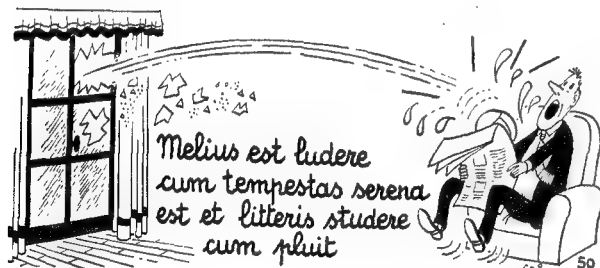 Melius est ludere
cum tempestas serena
est et litteris studere
cum pluit
50